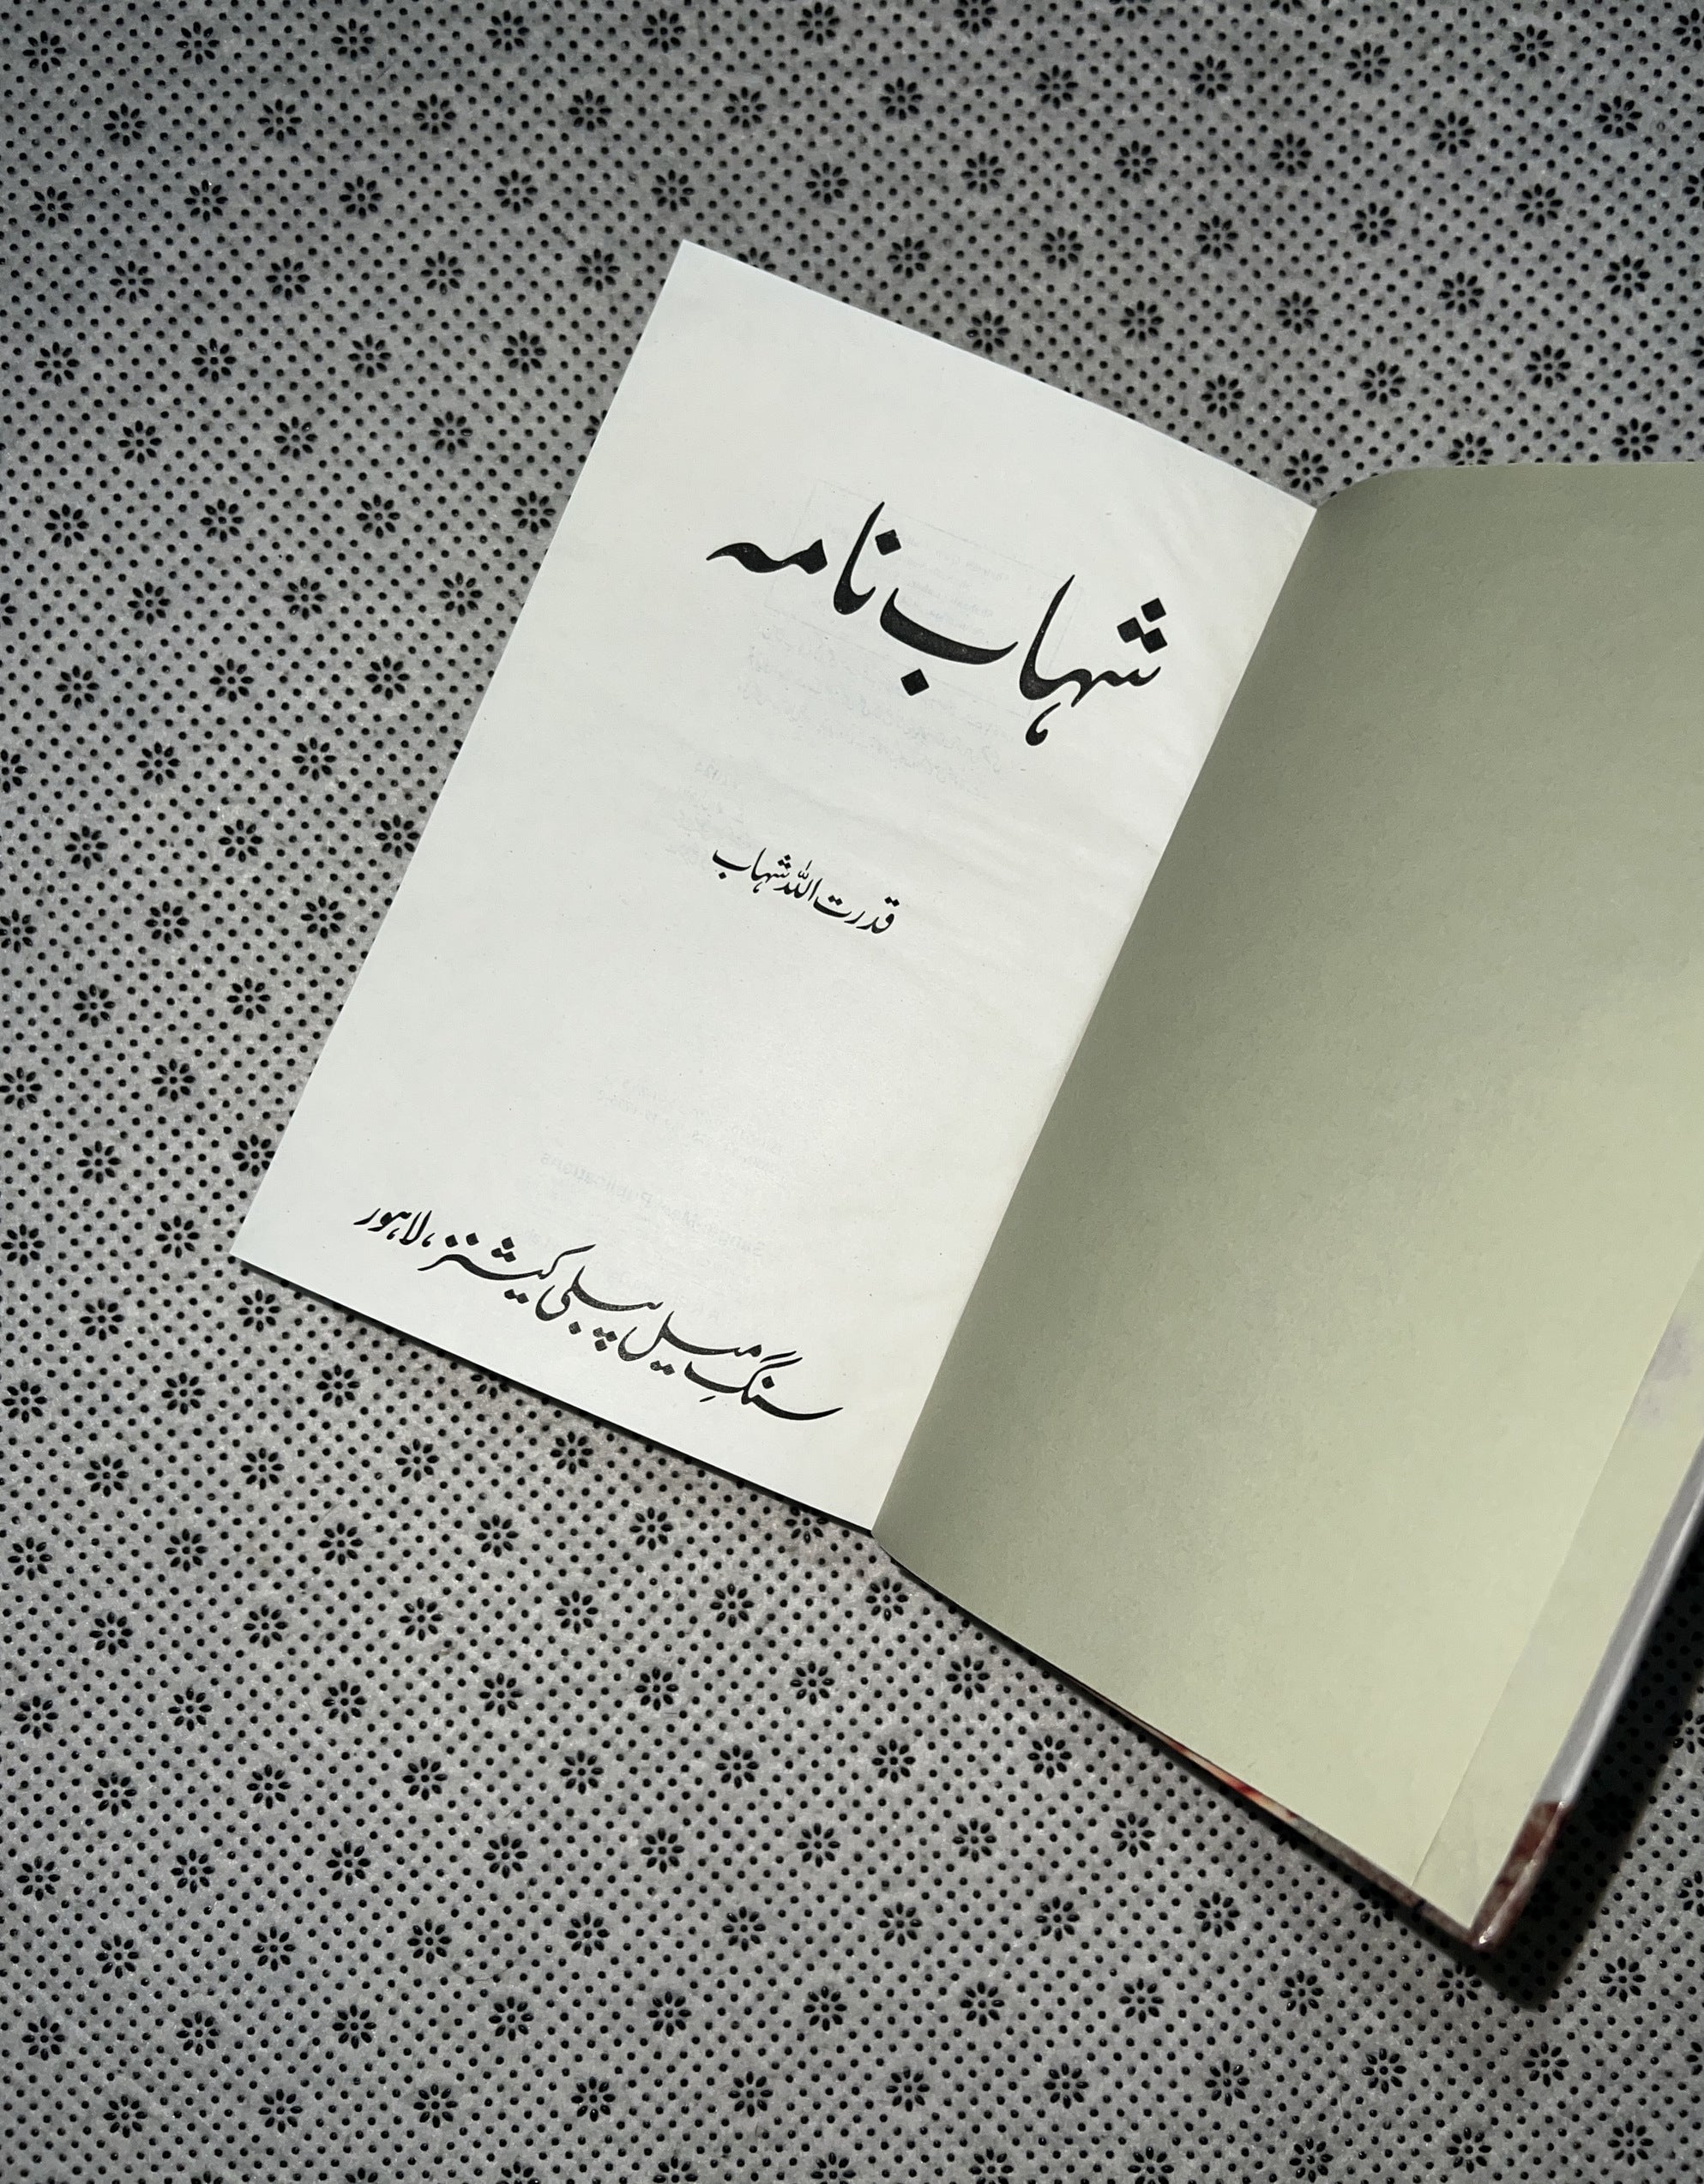 شہاب نامہ
قدرت اللہ شہاب
سنگِ میل پبلی کیشنز، لاہور